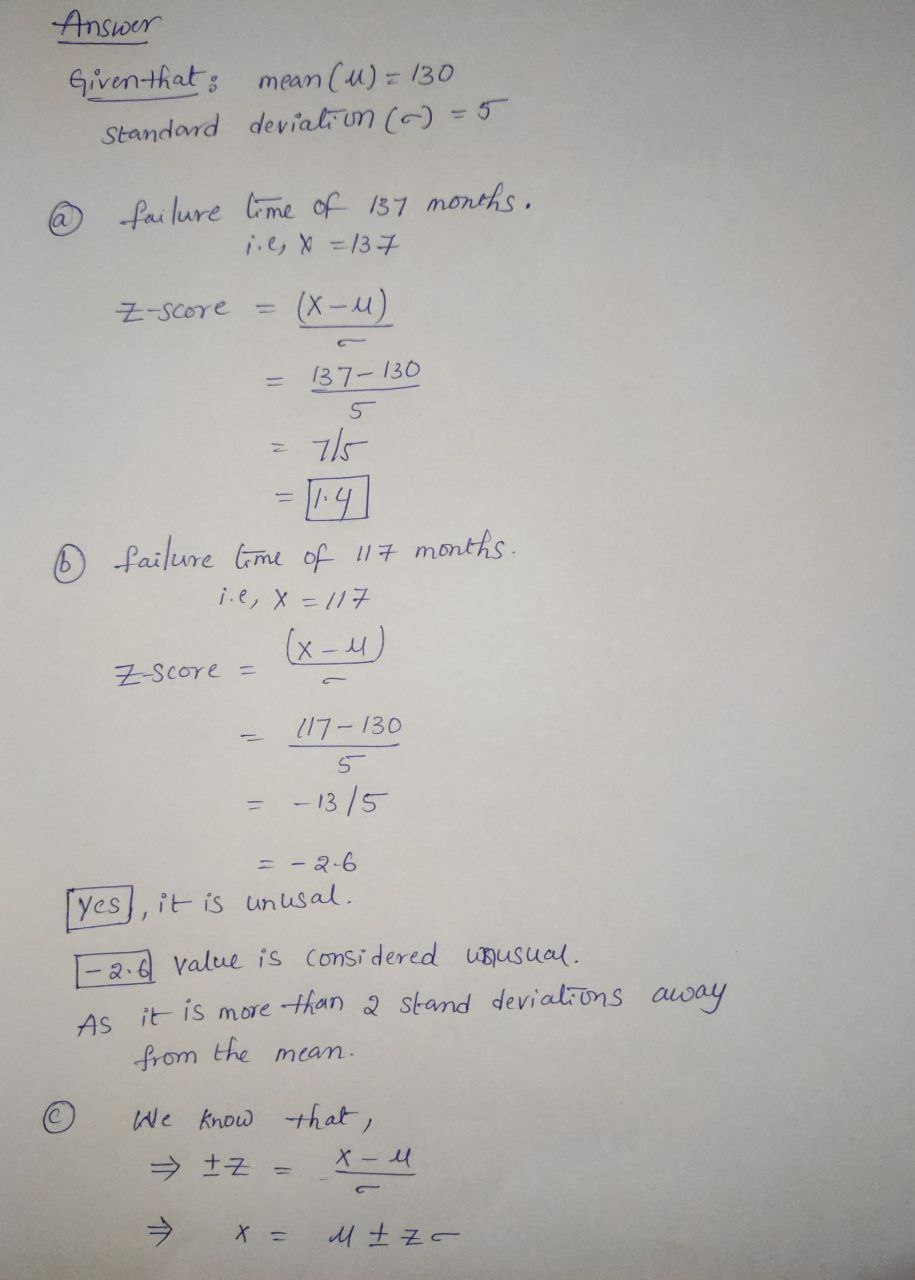 Answer
Given that: mean (μ) = 130
Standard deviation (σ) = 5
ⓐ failure time of 137 months.
i.e, X = 137
Z-score = (X-μ)
σ
= 137-130
5
= 7/5
= 1.4
ⓑ failure time of 117 months.
i.e, X = 117
Z-score = (X-μ)
σ
= 117-130
5
= -13/5
= -2.6
yes, it is unusal.
-2.6 value is considered unusual.
As it is more than 2 stand deviations away
from the mean.
ⓒ We know that,
⇒ ±Z = X-μ
σ
⇒ X = μ ± Zσ